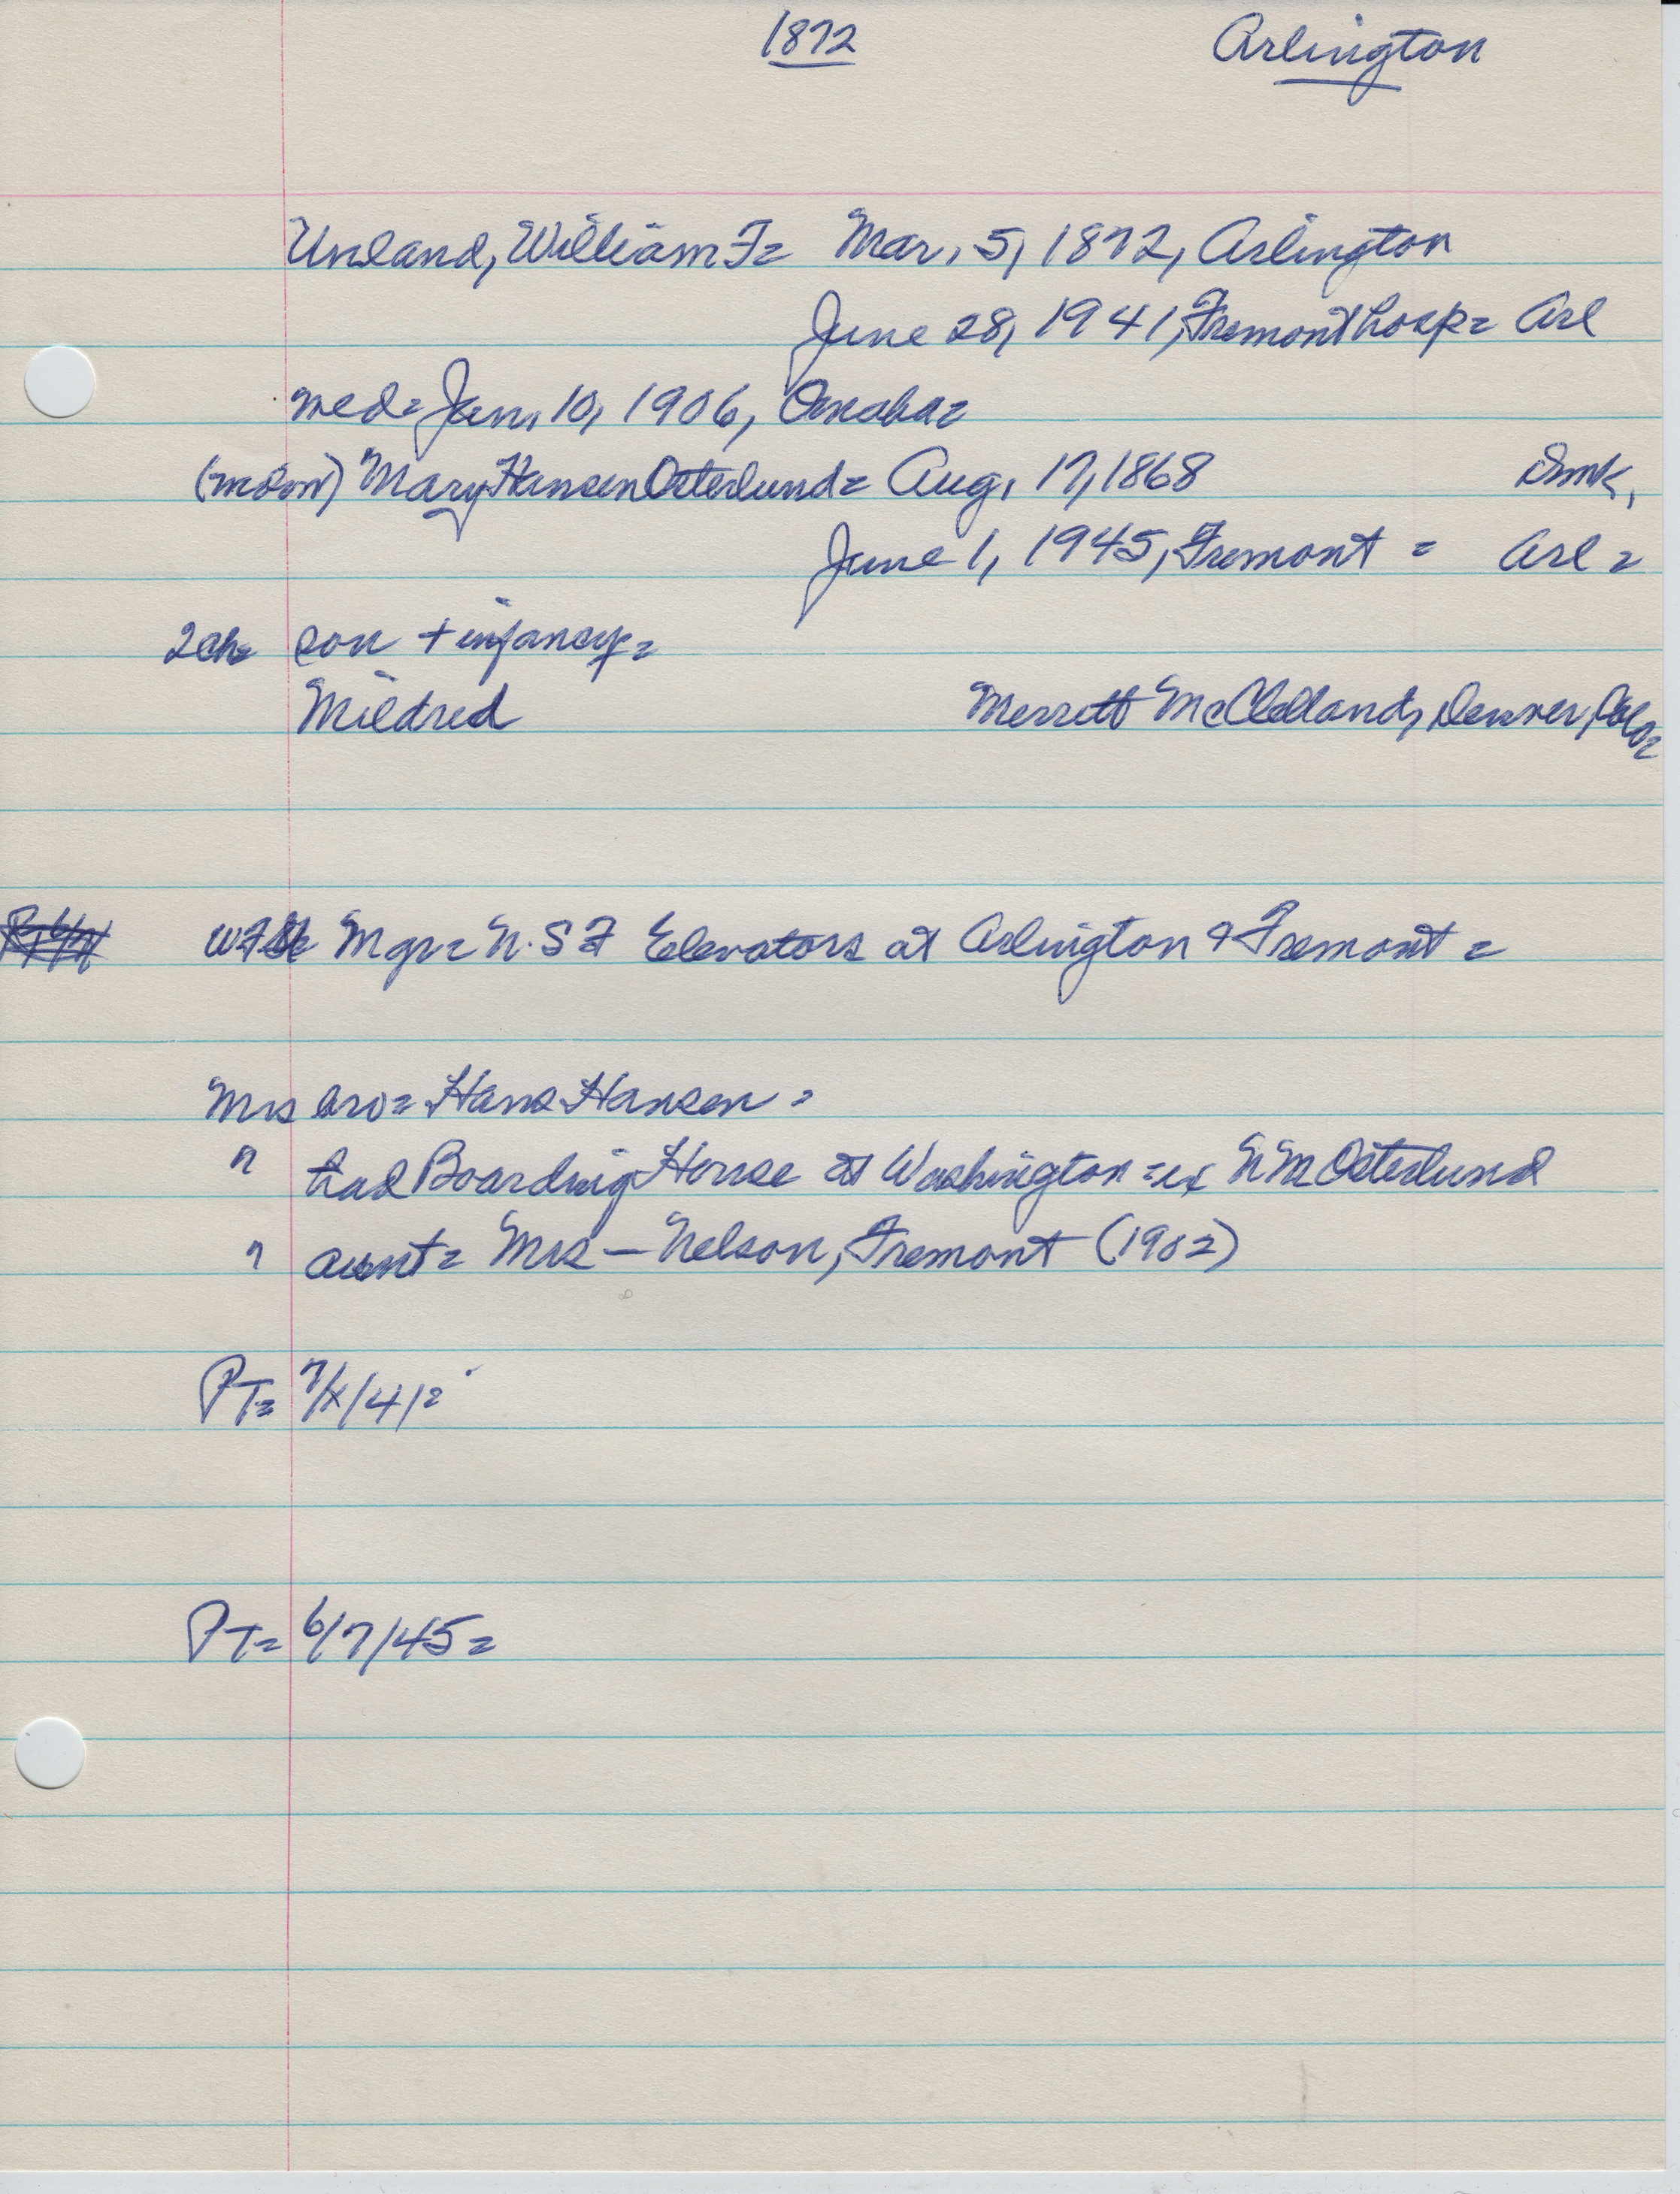 1872 Arlington
Unland, William F= Mar, 5, 1872, Arlington
June 28, 1941, Fremont hosp= Arl
med= Jan, 10, 1906, Omaha=
Mary Hansen Osterlund= Aug, 17, 1868 Dmk,
June 1, 1945, Fremont = Arl =
2ch= son + infancy=
Mildred Merrett McClelland, Denver, Colo=
Mgr= N.S F Elevators at Arlington & Fremont =
Mrs bro= Hans Hansen =
" had Boarding House at Washington = ex N M Osterlund
" aunt= Mrs — Nelson, Fremont (1902)
PT= 7/x/41=
PT= 6/7/45=